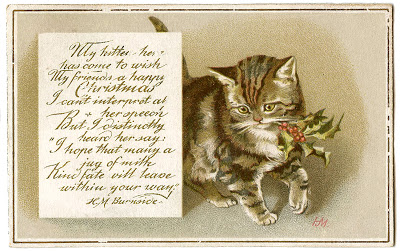 My kitten - her -
has come to wish
My friends a happy
Christmas
I can't interpret all
her speech
But, I distinctly
"I heard her say:
I hope that many a
jug of milk
Kind fate will leave
within your way"
H.M. Burnside.
HM